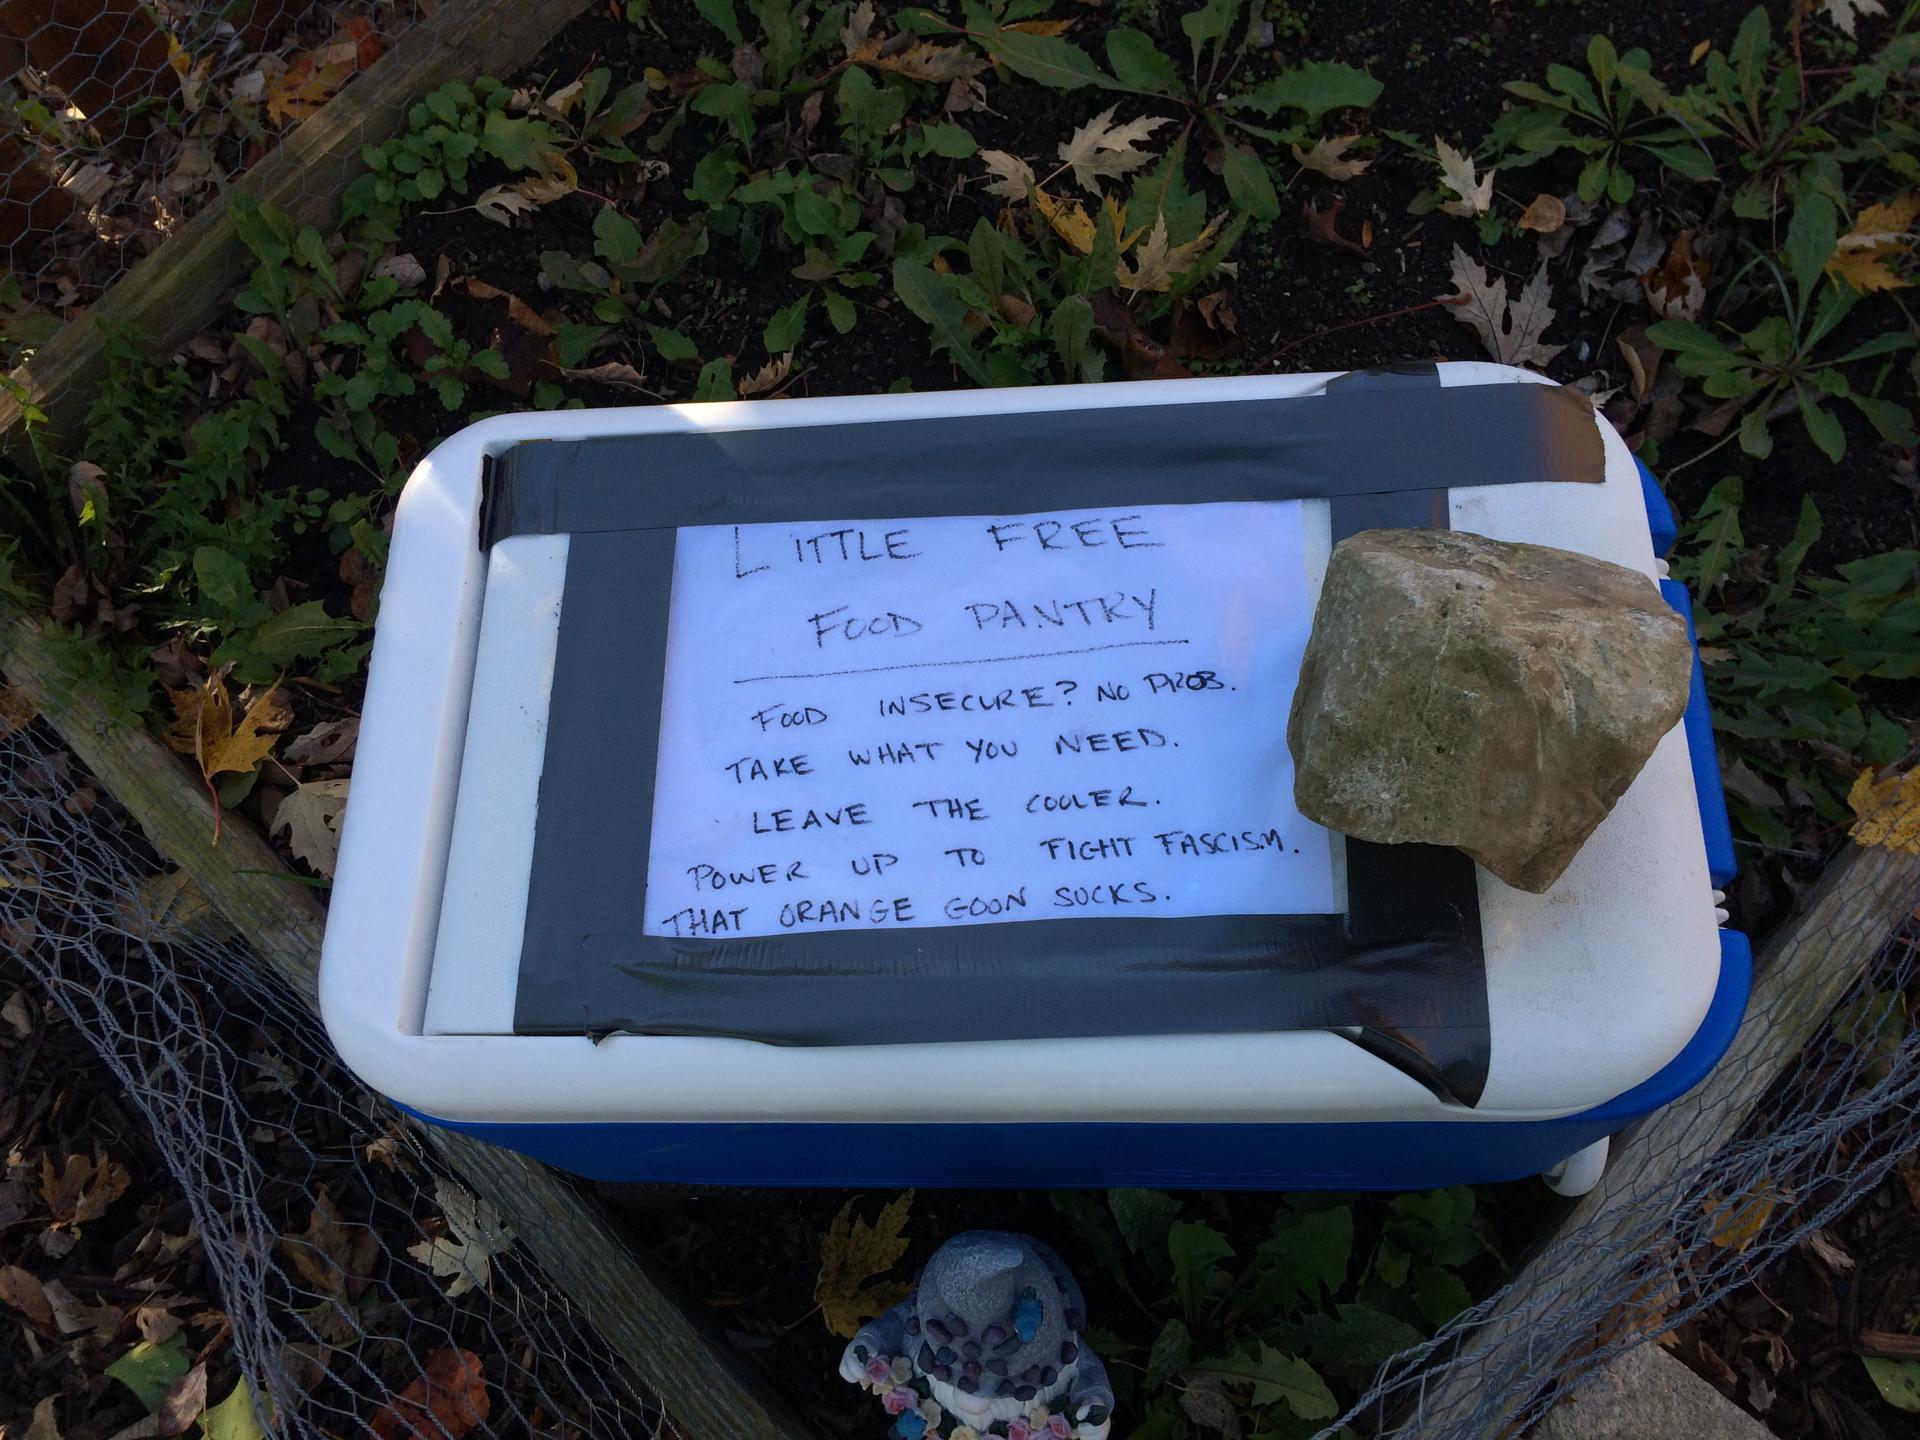 LITTLE FREE
FOOD PANTRY
FOOD INSECURE? NO PROB.
TAKE WHAT YOU NEED.
LEAVE THE COOLER.
POWER UP TO FIGHT FASCISM.
THAT ORANGE GOON SUCKS.